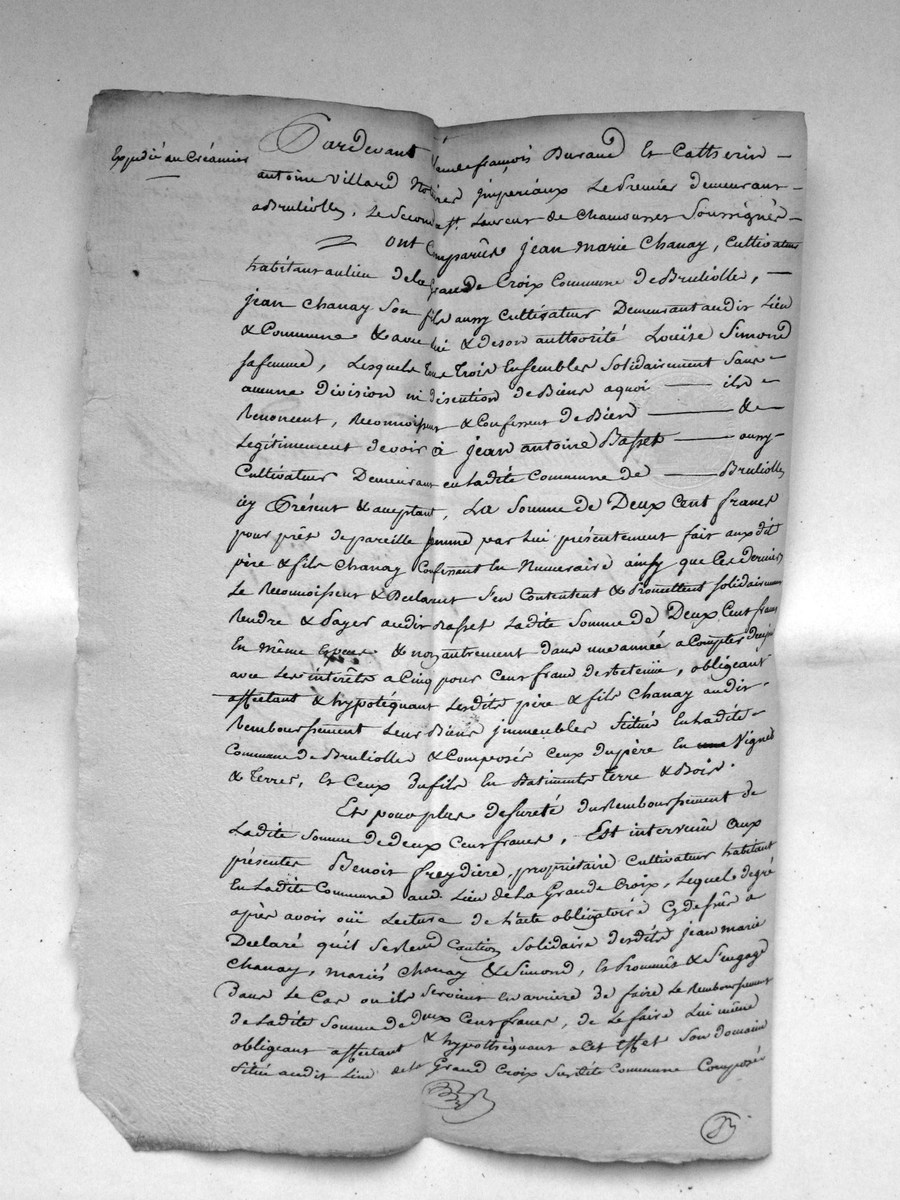 Expedié au Créancier
Pardevant Claude françois Durand et Catherin
antoine Villard Notaires Jmperiaux le premier demeurant
a Brulliolles, le second a st. Laurent de Chamousset soussignés
ont Comparûs jean marie Chanay, Cultivateur
habitant au lieu de la grande Croix Commune de Brulliolle,
jean Chanay son fils aussy Cultivateur Demeurant audit lieu
& Commune & avec lui & de son authorité Louïse Simond
sa femme, lesquels tous trois Ensembles solidairement sans
aucune division ni discution de Biens aquoi ils
Renoncent, Reconnoissent & Confessent de Bien &
Legitimement devoir à jean antoine Basset aussy
Cultivateur Demeurant en ladite Commune de Brulliolle
icy Présent & acceptant, La somme de Deux Cent francs
pour prêt de pareille somme par lui présentement fait auxdit
père & fils Chanay Confessant En Numeraire ainsy que Ces dernier
le Reconnoissent & Declarent s'en Contentent & Promettent solidairement
Rendre & Payer audit Basset ladite somme de Deux Cent francs
En même Espece & non autrement dans une année a Compter de ce jour
avec les intérêts a Cinq pour Cent franc de Retenüe, obligeant
affectant & hypotéquant lesdits père & fils Chanay audit
Remboursement leurs Biens jmmeubles Situés En ladite
Commune de Brulliolle & Composés Ceux du père En Vignes
& Terres, Et Ceux du fils En Batiments terre & Bois.
Et pour plus de sureté du Remboursement de
Ladite somme de deux Cent francs, Est intervenû aux
présentes Benoit freydière, propriétaire cultivateur habitant
En Ladite Commune aud. Lieu de la Grande Croix, lequel de gré
après avoir oüi Lecture de l'acte obligatoire Cy dessûs a
Declaré qu'il se rend Caution solidaire desdits jean marie
Chanay, mariés Chanay & Simond, Et Promis & s'engage
Dans le Cas ou ils seroient En arriere de faire le Remboursement
de Ladite somme de deux Cent francs, de le faire Lui même
obligeant affectant & hypothéquant a Cet Effet son domaine
situé audit Lieu de la Grand Croix susdite Commune Composés